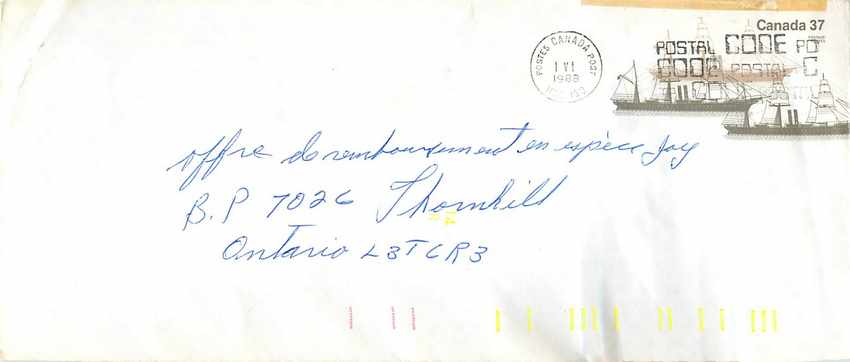 Canada 37
POSTAL CODE PO
CODE POSTAL C
CO
POSTES CANADA POST
1 VI
1988
offre de remboursement en espèce Joy
B.P 7026 Thornhill
Ontario L3T6R3